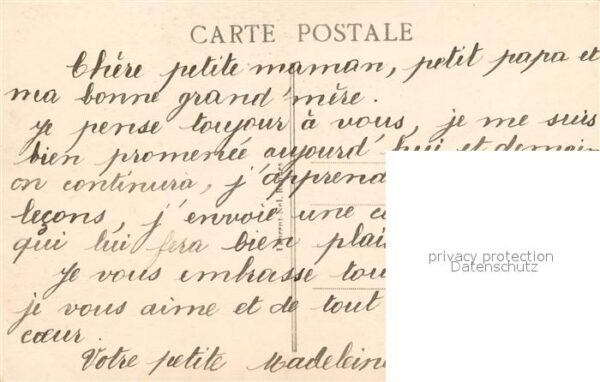 CARTE POSTALE
Chère petite maman, petit papa et
ma bonne grand'mère.
Je pense toujour à vous, je me suis
bien promenée aujourd'hui et demain
on continura, j'apprend
leçons, j'envoie une
qui lui fera bien
Je vous embrasse
je vous aime et de tout
cœur.
Votre petite Madeleine
privacy protection
Datenschutz